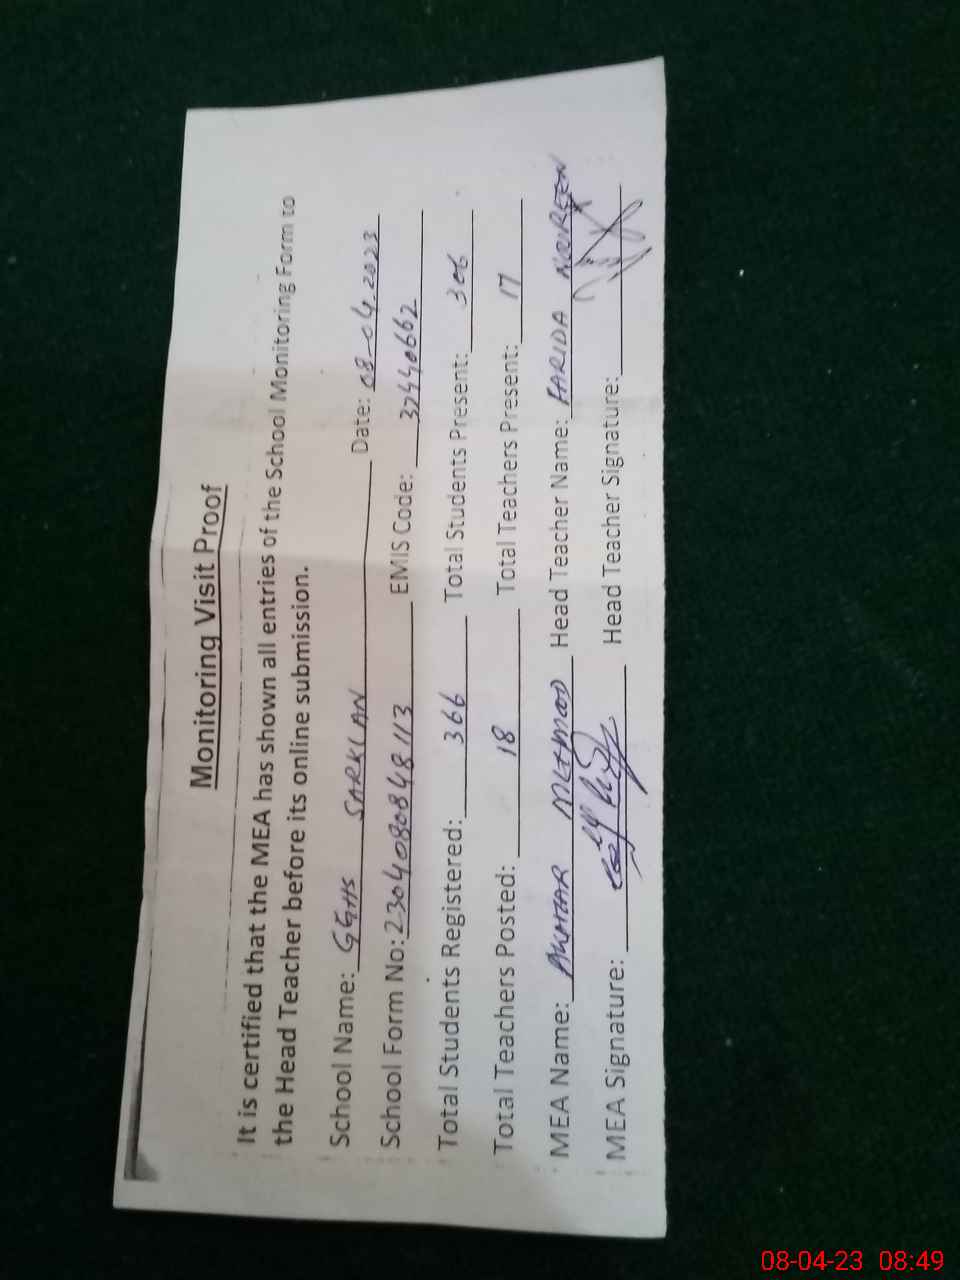 Monitoring Visit Proof
It is certified that the MEA has shown all entries of the School Monitoring Form to
the Head Teacher before its online submission.
School Name: GGHS SARKLAN Date: 08-04-2023
School Form No: 2304080848113 EMIS Code: 37440662
Total Students Registered: 366 Total Students Present: 306
Total Teachers Posted: 18 Total Teachers Present: 17
MEA Name: AKHTAR MEHMOOD Head Teacher Name: FARIDA NOUREEN
MEA Signature: Head Teacher Signature:
08-04-23 08:49